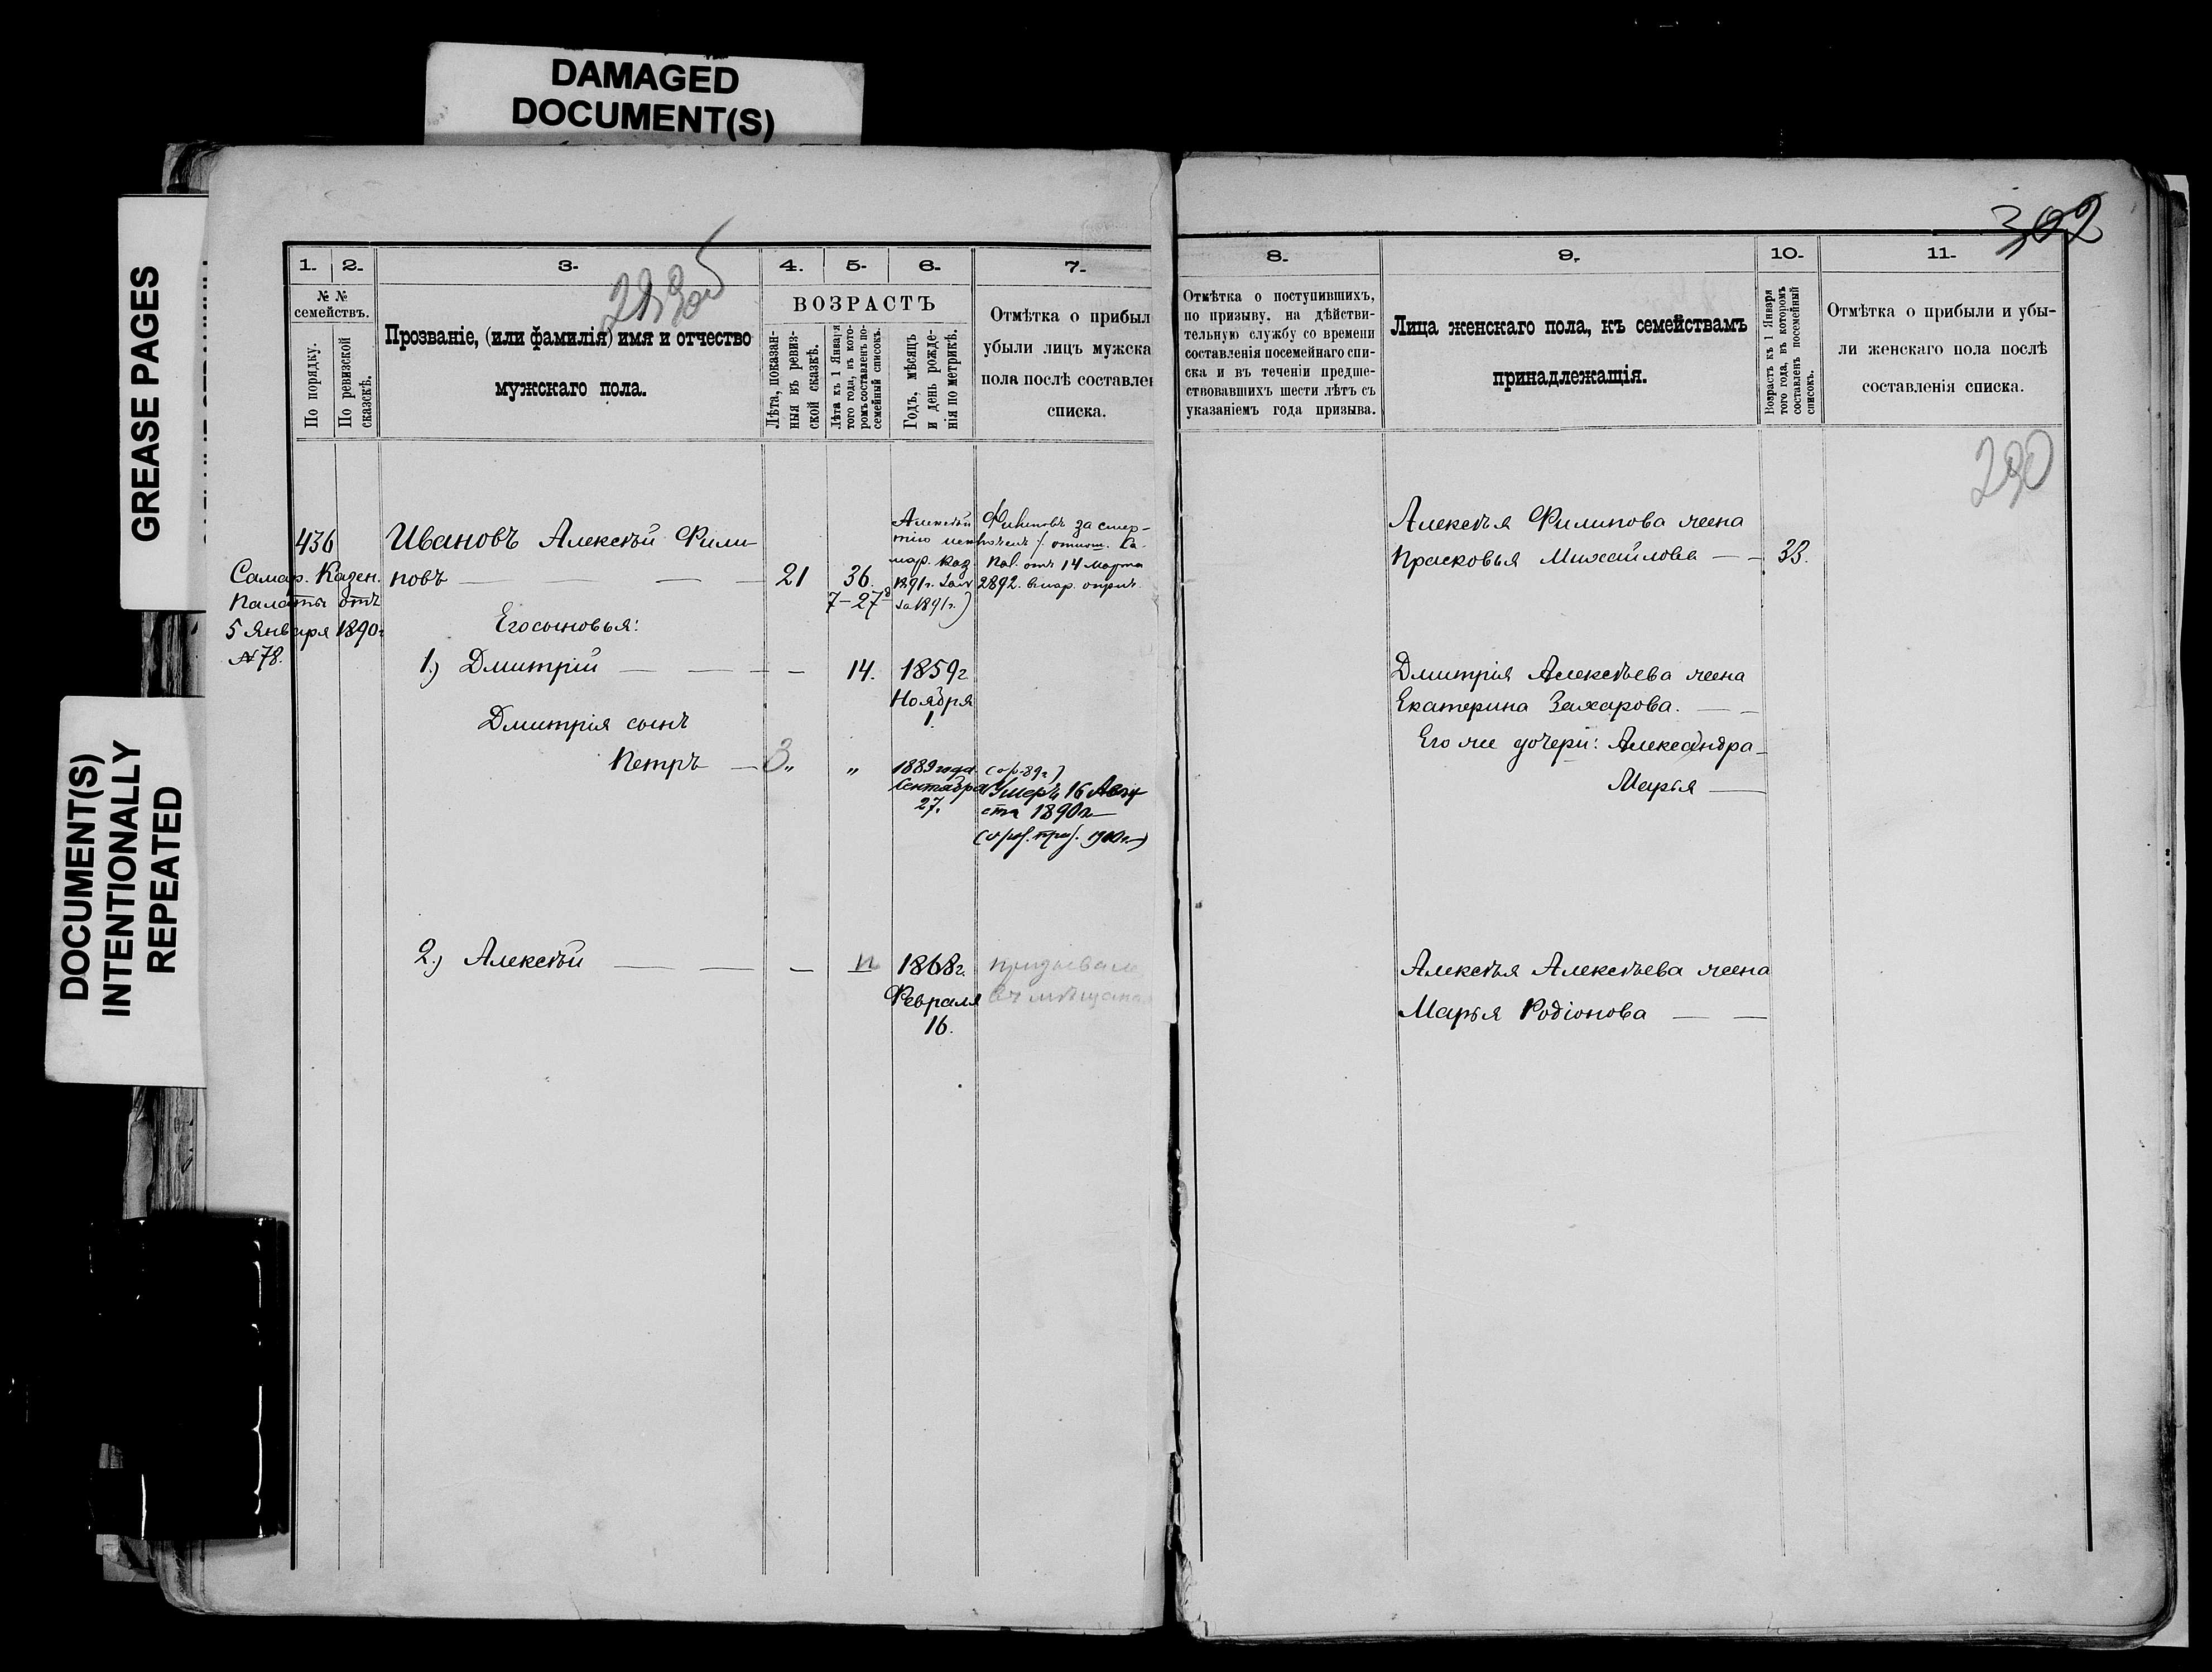 DAMAGED
DOCUMENT(S)
GREASE PAGES
DOCUMENT(S)
INTENTIONALLY
REPEATED
302
1.
2.
3.
4.
5.
6.
7.
№ №
семействъ.
По порядку.
По ревизской
сказкѣ.
Прозваніе, (или фамилія) имя и отчество
мужскаго пола.
ВОЗРАСТЪ
Лѣта, показан-
ныя въ ревиз-
ской сказкѣ.
Лѣта къ 1 Января
того года, въ кото-
ромъ составленъ по-
семейный списокъ.
Годъ, мѣсяцъ
и день рожде-
нія по метрикѣ.
Отмѣтка о прибыл
убыли лицъ мужска
пола послѣ составле
списка.
436
Самар. Казен.
Палаты отъ
5 Января 1890г
№ 78.
Ивановъ Алексѣй Фили-
повъ
21
36.
7-27
Алексѣй Филиповъ за смер-
тію
отъ 14 Марта
1891г.
2892.
за 1891г.)
Его сыновья:
1.) Дмитрій — — — —
14.
1859г
Ноября
1.
Дмитрія сынъ
Петръ —
3
„
„
1889 года
Сентября
27.
Умеръ 16 Авгу
ста 1890г
2.) Алексѣй — — —
1868г.
Февраля
16.
8.
9.
10.
11.
Отмѣтка о поступившихъ,
по призыву, на дѣйстви-
тельную службу со времени
составленія посемейнаго спи-
ска и въ теченіи предше-
ствовавшихъ шести лѣтъ съ
указаніемъ года призыва.
Лица женскаго пола, къ семействамъ
принадлежащія.
Возрастъ къ 1 Января
того года, въ которомъ
составленъ посемейный
списокъ.
Отмѣтка о прибыли и убы-
ли женскаго пола послѣ
составленія списка.
290
Алексѣя Филипова жена
Прасковья Михайлова — — 33.
Дмитрія Алексѣева жена
Екатерина Захарова. — —
Его же дочери: Александра —
Марья —
Алексѣя Алексѣева жена
Марья Родіонова — —